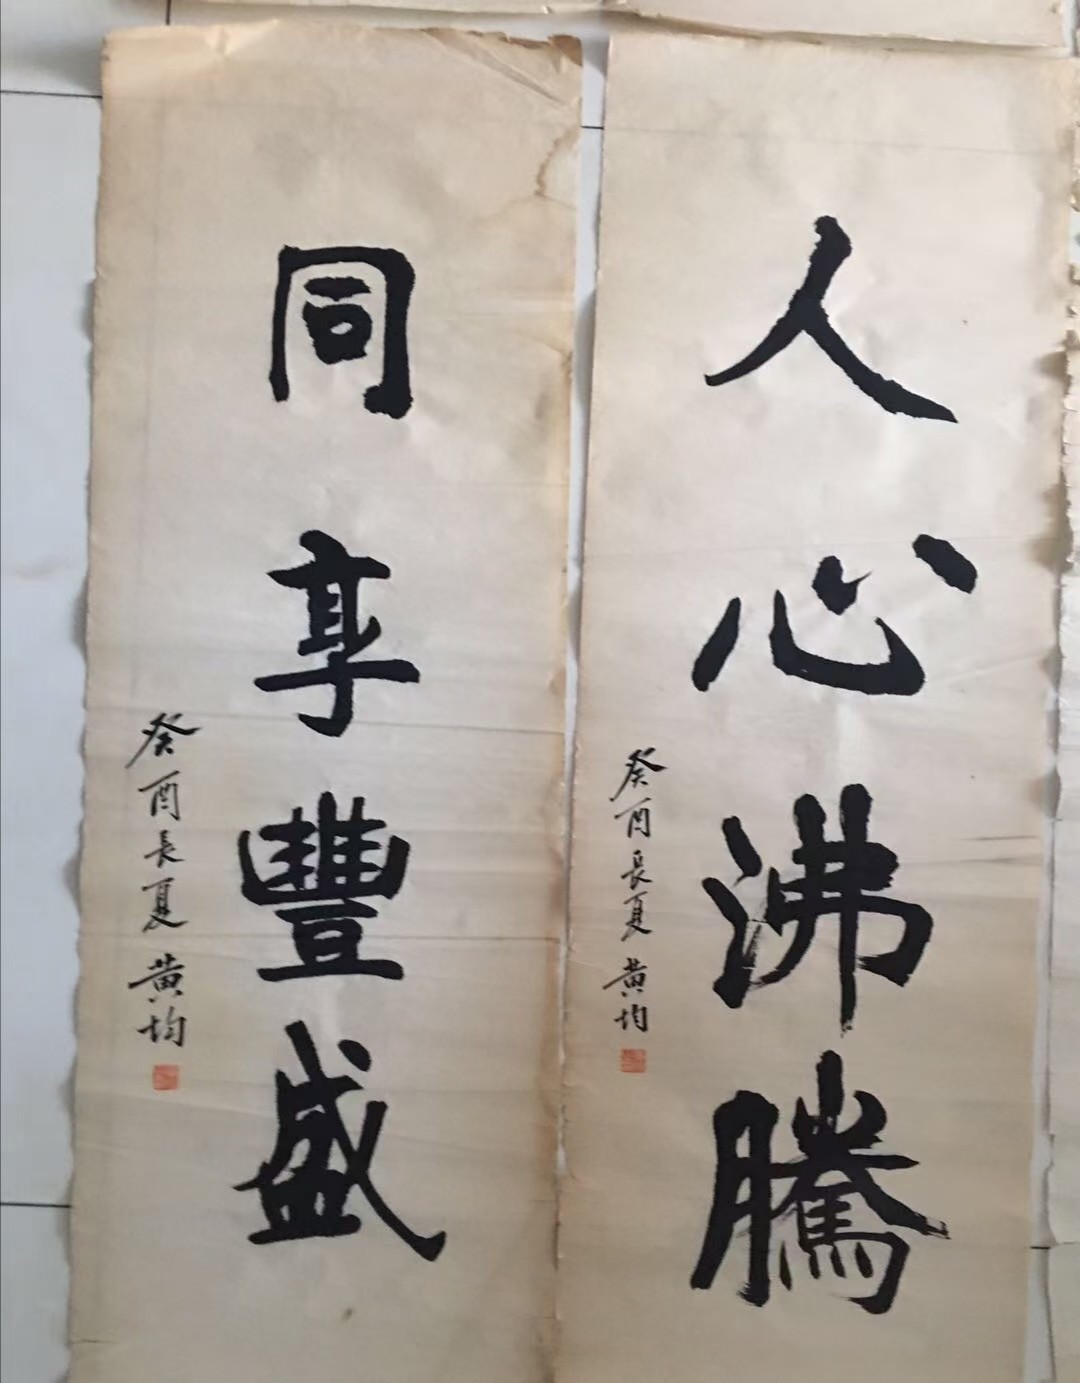 人心沸騰
癸酉長夏 黄均
同享豐盛
癸酉長夏 黄均